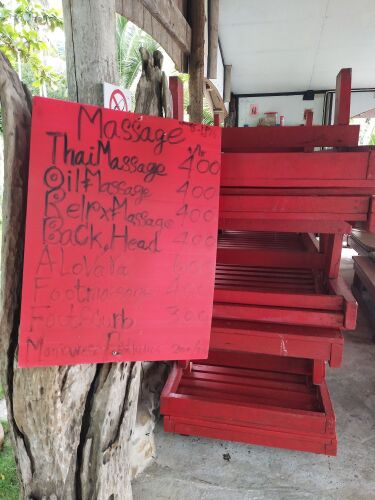 Massage
Thai Massage 400
Oil Massage 400
Relax Massage 400
Back, Head 400
ALoVara 600
Footmassage 400
Foot Scurb 300